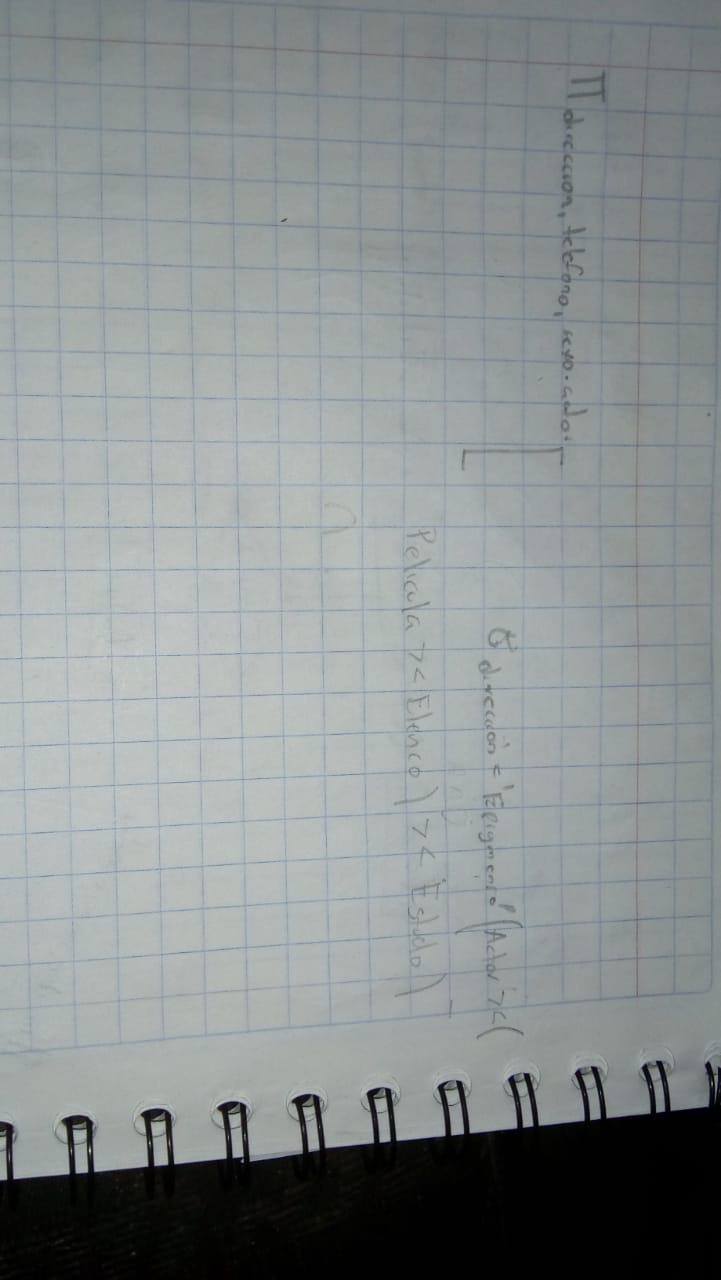 π dirección, telefono, sexo.actor [
σ dirección = 'Eligmenso' (Actor >< (
Pelicula >< Elenco) >< Estudio)